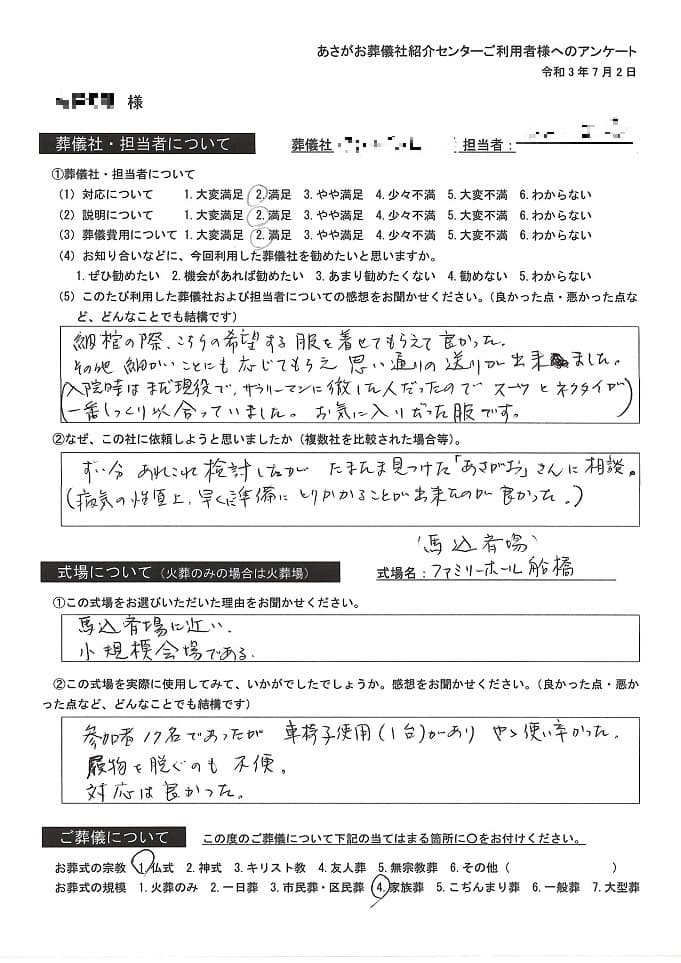 あさがお葬儀社紹介センターご利用者様へのアンケート
令和3年7月2日
様
葬儀社・担当者について 葬儀社 担当者：
①葬儀社・担当者について
(1) 対応について 1.大変満足 2.満足 3.やや満足 4.少々不満 5.大変不満 6.わからない
(2) 説明について 1.大変満足 2.満足 3.やや満足 4.少々不満 5.大変不満 6.わからない
(3) 葬儀費用について 1.大変満足 2.満足 3.やや満足 4.少々不満 5.大変不満 6.わからない
(4) お知り合いなどに、今回利用した葬儀社を勧めたいと思いますか。
1.ぜひ勧めたい 2.機会があれば勧めたい 3.あまり勧めたくない 4.勧めない 5.わからない
(5) このたび利用した葬儀社および担当者についての感想をお聞かせください。（良かった点・悪かった点な
ど、どんなことでも結構です）
納棺の際、こちらの希望する服を着せてもらえて良かった。
その他 細かいことにも 応じてもらえ 思い通りの送りが出来ました。
(入院時はまだ現役で、サラリーマンに徹した人だったので スーツとネクタイが
一番しっくり似合っていました。お気に入りだった服です。)
②なぜ、この社に依頼しようと思いましたか（複数社を比較された場合等）。
ずい分 あれこれ検討したが たまたま見つけた「あさがお」さんに相談。
(病気の性質上、早くに準備に とりかかることが出来たのが良かった。)
「馬込斎場」
式場について（火葬のみの場合は火葬場） 式場名：ファミリーホール船橋
①この式場をお選びいただいた理由をお聞かせください。
馬込斎場に近い、
小規模会場である。
②この式場を実際に使用してみて、いかがでしたでしょうか。感想をお聞かせください。（良かった点・悪か
った点など、どんなことでも結構です）
参加者17名であったが 車椅子使用(1台)があり やゝ使い辛かった。
履物を脱ぐのも 不便。
対応は良かった。
ご葬儀について この度のご葬儀について下記の当てはまる箇所に〇をお付けください。
お葬式の宗教 1.仏式 2.神式 3.キリスト教 4.友人葬 5.無宗教葬 6.その他（ ）
お葬式の規模 1.火葬のみ 2.一日葬 3.市民葬・区民葬 4.家族葬 5.こぢんまり葬 6.一般葬 7.大型葬